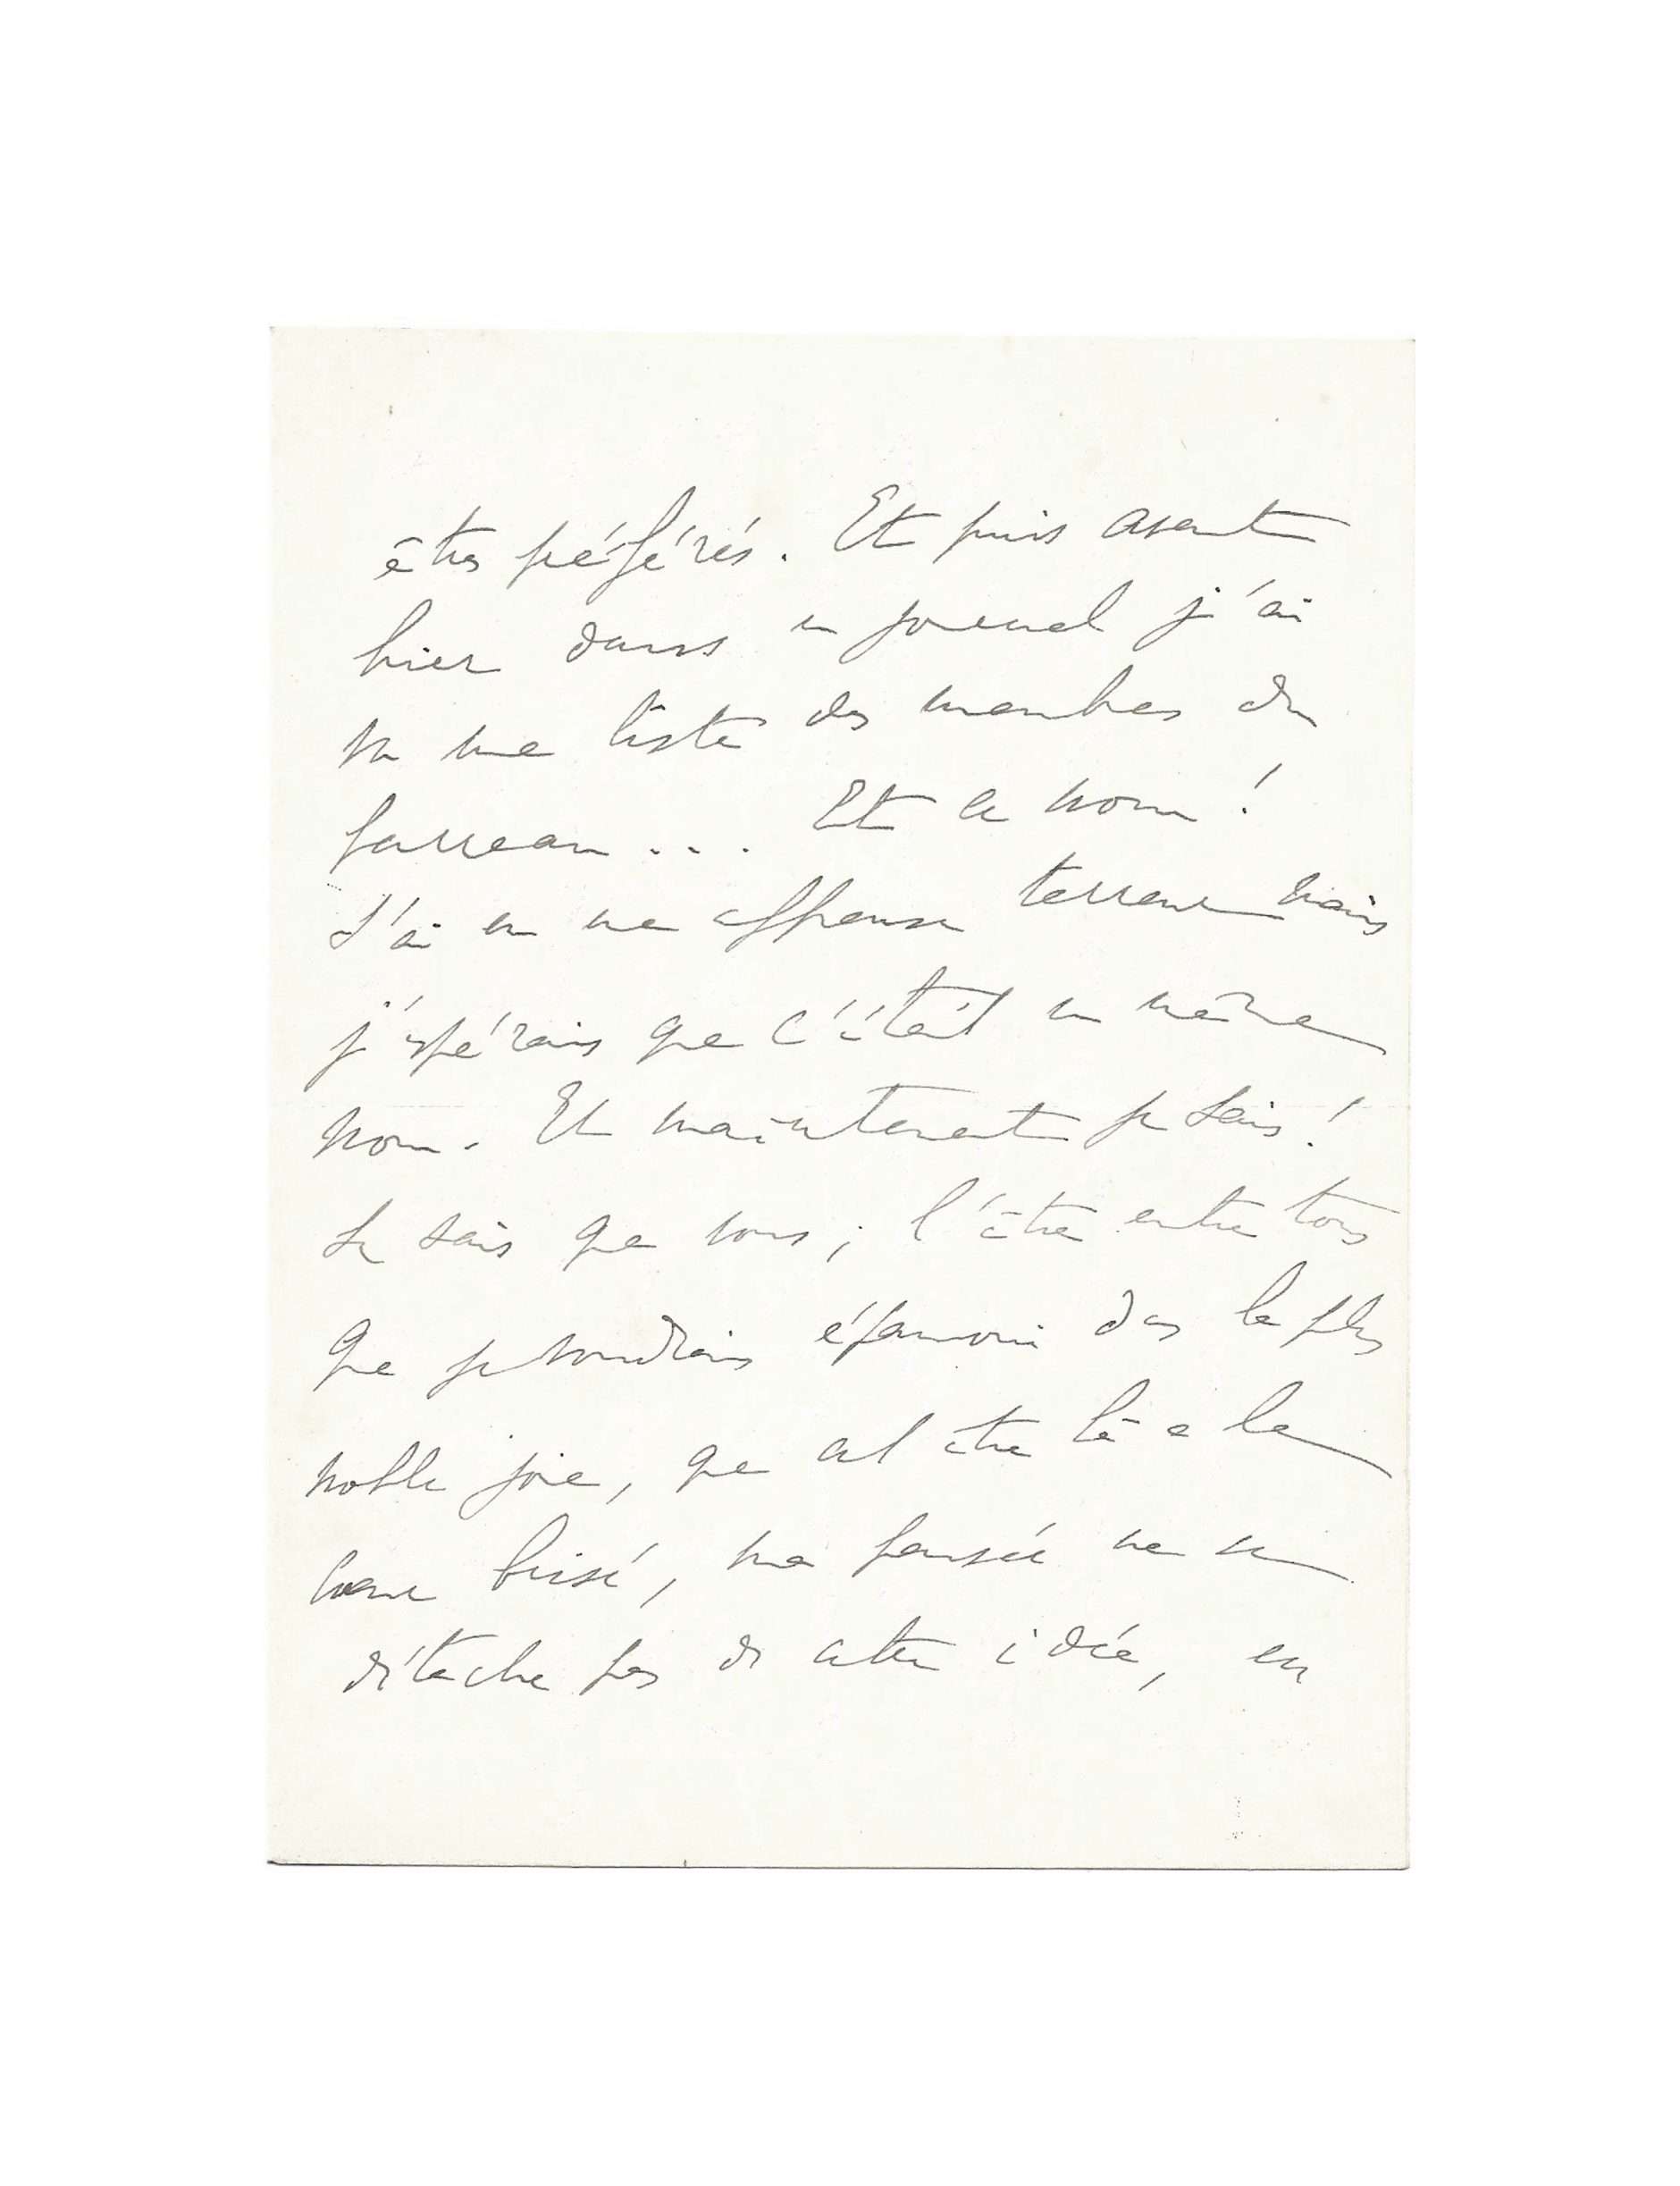 êtres préférés. Et puis avant
hier dans un journal j'ai
vu une liste des membres du
barreau... Et ce nom !
J'ai eu une affreuse terreur mais
j'espérais que c'était un même
nom. Et maintenant je sais !
Je sais que vous ; l'être entre tous
que je voudrais épanoui dans la plus
noble joie, que cet être là a le
cœur brisé, ma pensée ne se
détache pas de cette idée, en